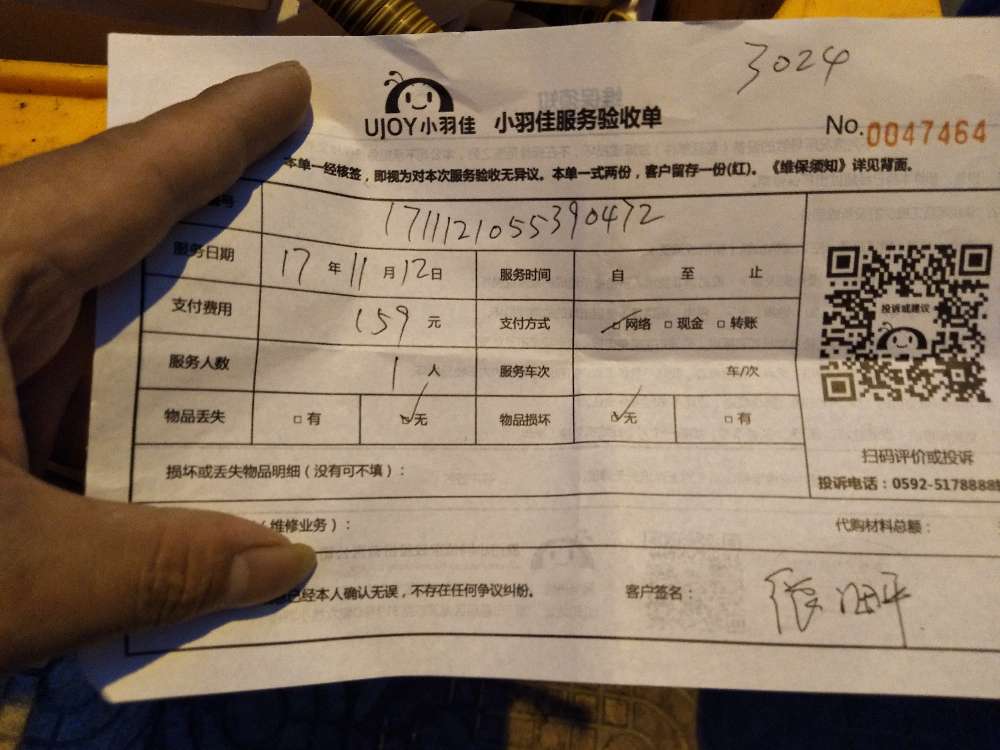 3024
UJOY小羽佳 小羽佳服务验收单
No.0047464
本单一经核签，即视为对本次服务验收无异议。本单一式两份，客户留存一份(红)。《维保须知》详见背面。
号 1711121055390472
服务日期 17年11月12日 服务时间 自 至 止
支付费用 159元 支付方式 ☑网络 □现金 □转账
服务人数 1人 服务车次 车/次
物品丢失 □有 ☑无 物品损坏 ☑无 □有
投诉或建议
扫码评价或投诉
投诉电话：0592-5178888
损坏或丢失物品明细（没有可不填）：
（维修业务）： 代购材料总额：
已经本人确认无误，不存在任何争议纠纷。 客户签名：